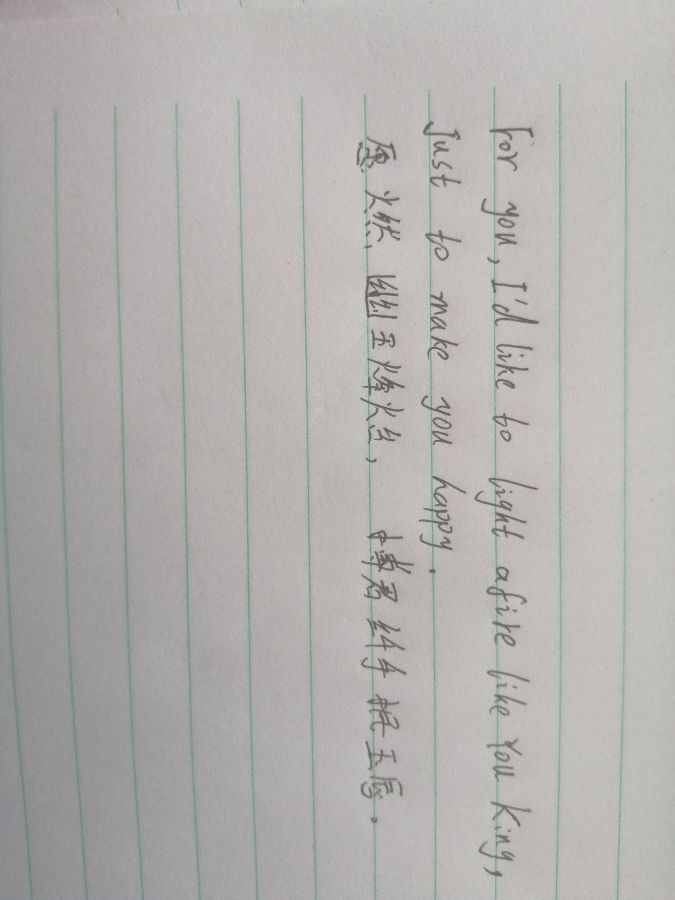 For you, I'd like to light afire like You King,
Just to make you happy.
愿燃幽王烽火台, 博君纤手抿玉唇.